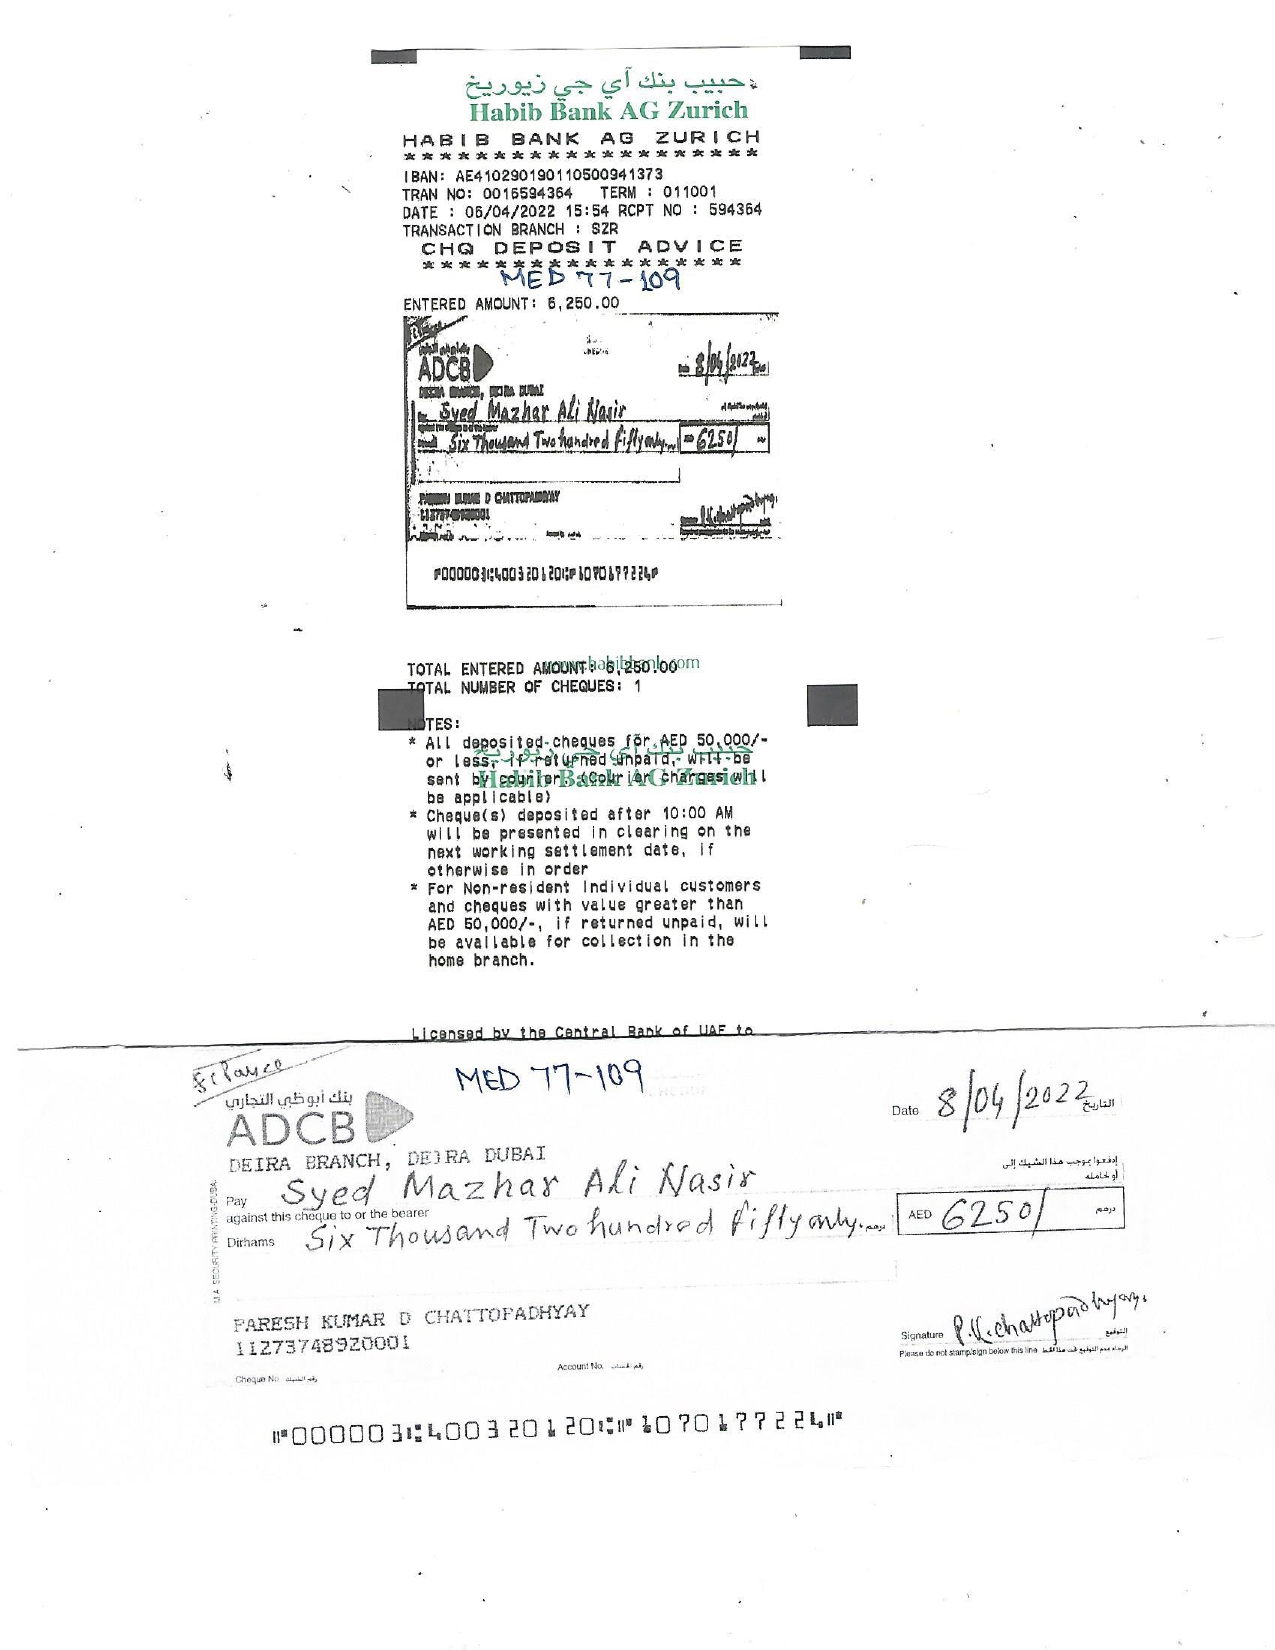 حبيب بنك آي جي زيوريخ
Habib Bank AG Zurich
HABIB BANK AG ZURICH
********************
IBAN: AE410290190110500941373
TRAN NO: 0016594364 TERM : 011001
DATE : 06/04/2022 15:54 RCPT NO : 594364
TRANSACTION BRANCH : SZR
CHQ DEPOSIT ADVICE
******************
MED 77-109
ENTERED AMOUNT: 6,250.00
ADCB
8/04/2022
DEIRA BRANCH, DEIRA DUBAI
Syed Mazhar Ali Nasir
Six Thousand Two hundred fifty only. 6250/
PARESH KUMAR D CHATTOPADHYAY
11273748920001
P.K.chattopadhyay
⑈000003⑆400320120⑆⑈1070177224⑈
www.habibbank.com
TOTAL ENTERED AMOUNT: 6,250.00
TOTAL NUMBER OF CHEQUES: 1
NOTES:
* All deposited cheques for AED 50,000/-
حبيب بنك آي جي زيوريخ
or less, if returned unpaid, will be
Habib Bank AG Zurich
sent by courier. (Courier charges will
be applicable)
* Cheque(s) deposited after 10:00 AM
will be presented in clearing on the
next working settlement date, if
otherwise in order
* For Non-resident Individual customers
and cheques with value greater than
AED 50,000/-, if returned unpaid, will
be available for collection in the
home branch.
Licensed by the Central Bank of UAE to
MED 77-109
بنك أبوظبي التجاري
ADCB
Date 8/04/2022 التاريخ
DEIRA BRANCH, DEIRA DUBAI
إدفعوا بموجب هذا الشيك إلى
أو لحامله
Pay Syed Mazhar Ali Nasir
against this cheque to or the bearer
Dirhams Six Thousand Two hundred fifty only. درهم AED 6250/ درهم
PARESH KUMAR D CHATTOPADHYAY
11273748920001
Signature P.K.chattopadhyay. التوقيع
Please do not stamp/sign below this line
Account No. رقم الحساب
Cheque No رقم الشيك
⑈000003⑆400320120⑆⑈1070177224⑈